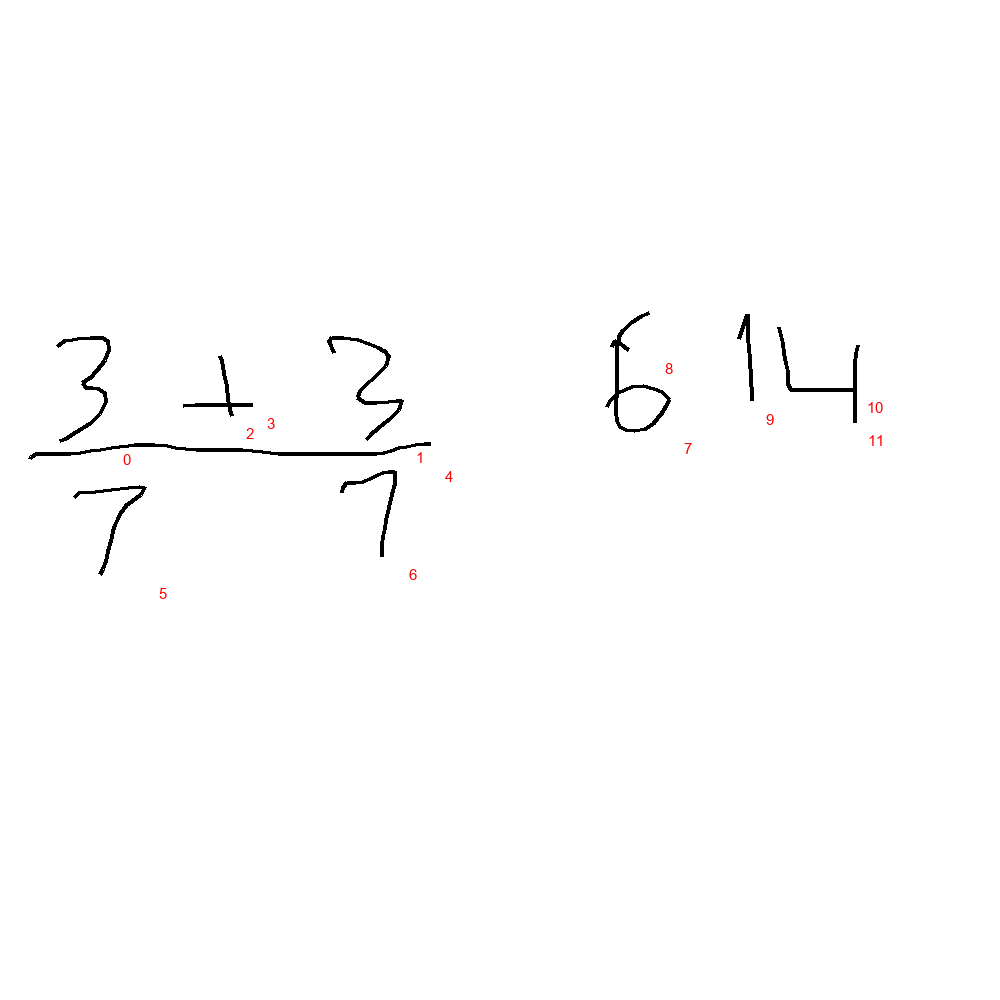 3 + 3 6 14
7 7
0 1 2 3 4 5 6 7 8 9 10 11